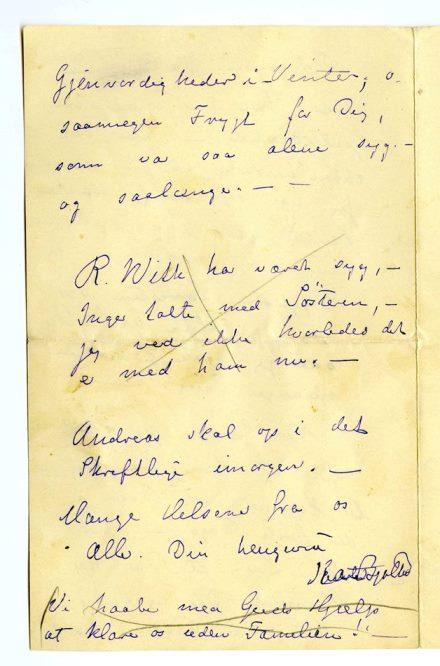 Gjenvordigheder i Vinter, o.
saamegen Frygt for Dig,
som var saa alene syg. —
og saalænge. — —
R. Witk har været syg, —
Inger talte med Søsteren, —
jeg ved ikke hvorledes det
er med ham nu. —
Andreas skal op i det
Skriftlige imorgen. —
Mange Helsener fra os
Alle. Din hengivne
Vi haabe med Guds Hjælp
at klare os uden Familien!! —